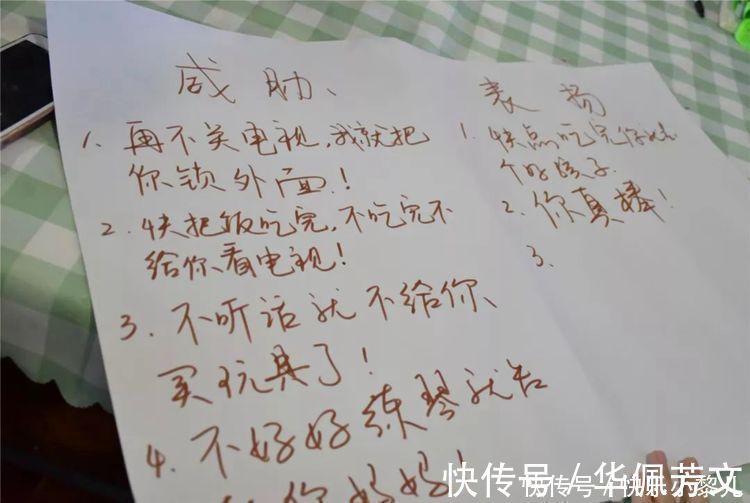 威胁、
1、再不关电视,我就把
你锁外面!
2、快把饭吃完,不吃完不
给你看电视!
3、不听话就不给你、
买玩具了!
4、不好好练琴就告
你妈妈!
表扬
1、快点吃完你就是
个好孩子.
2、你真棒!
3、
快传号 / 华佩芳文